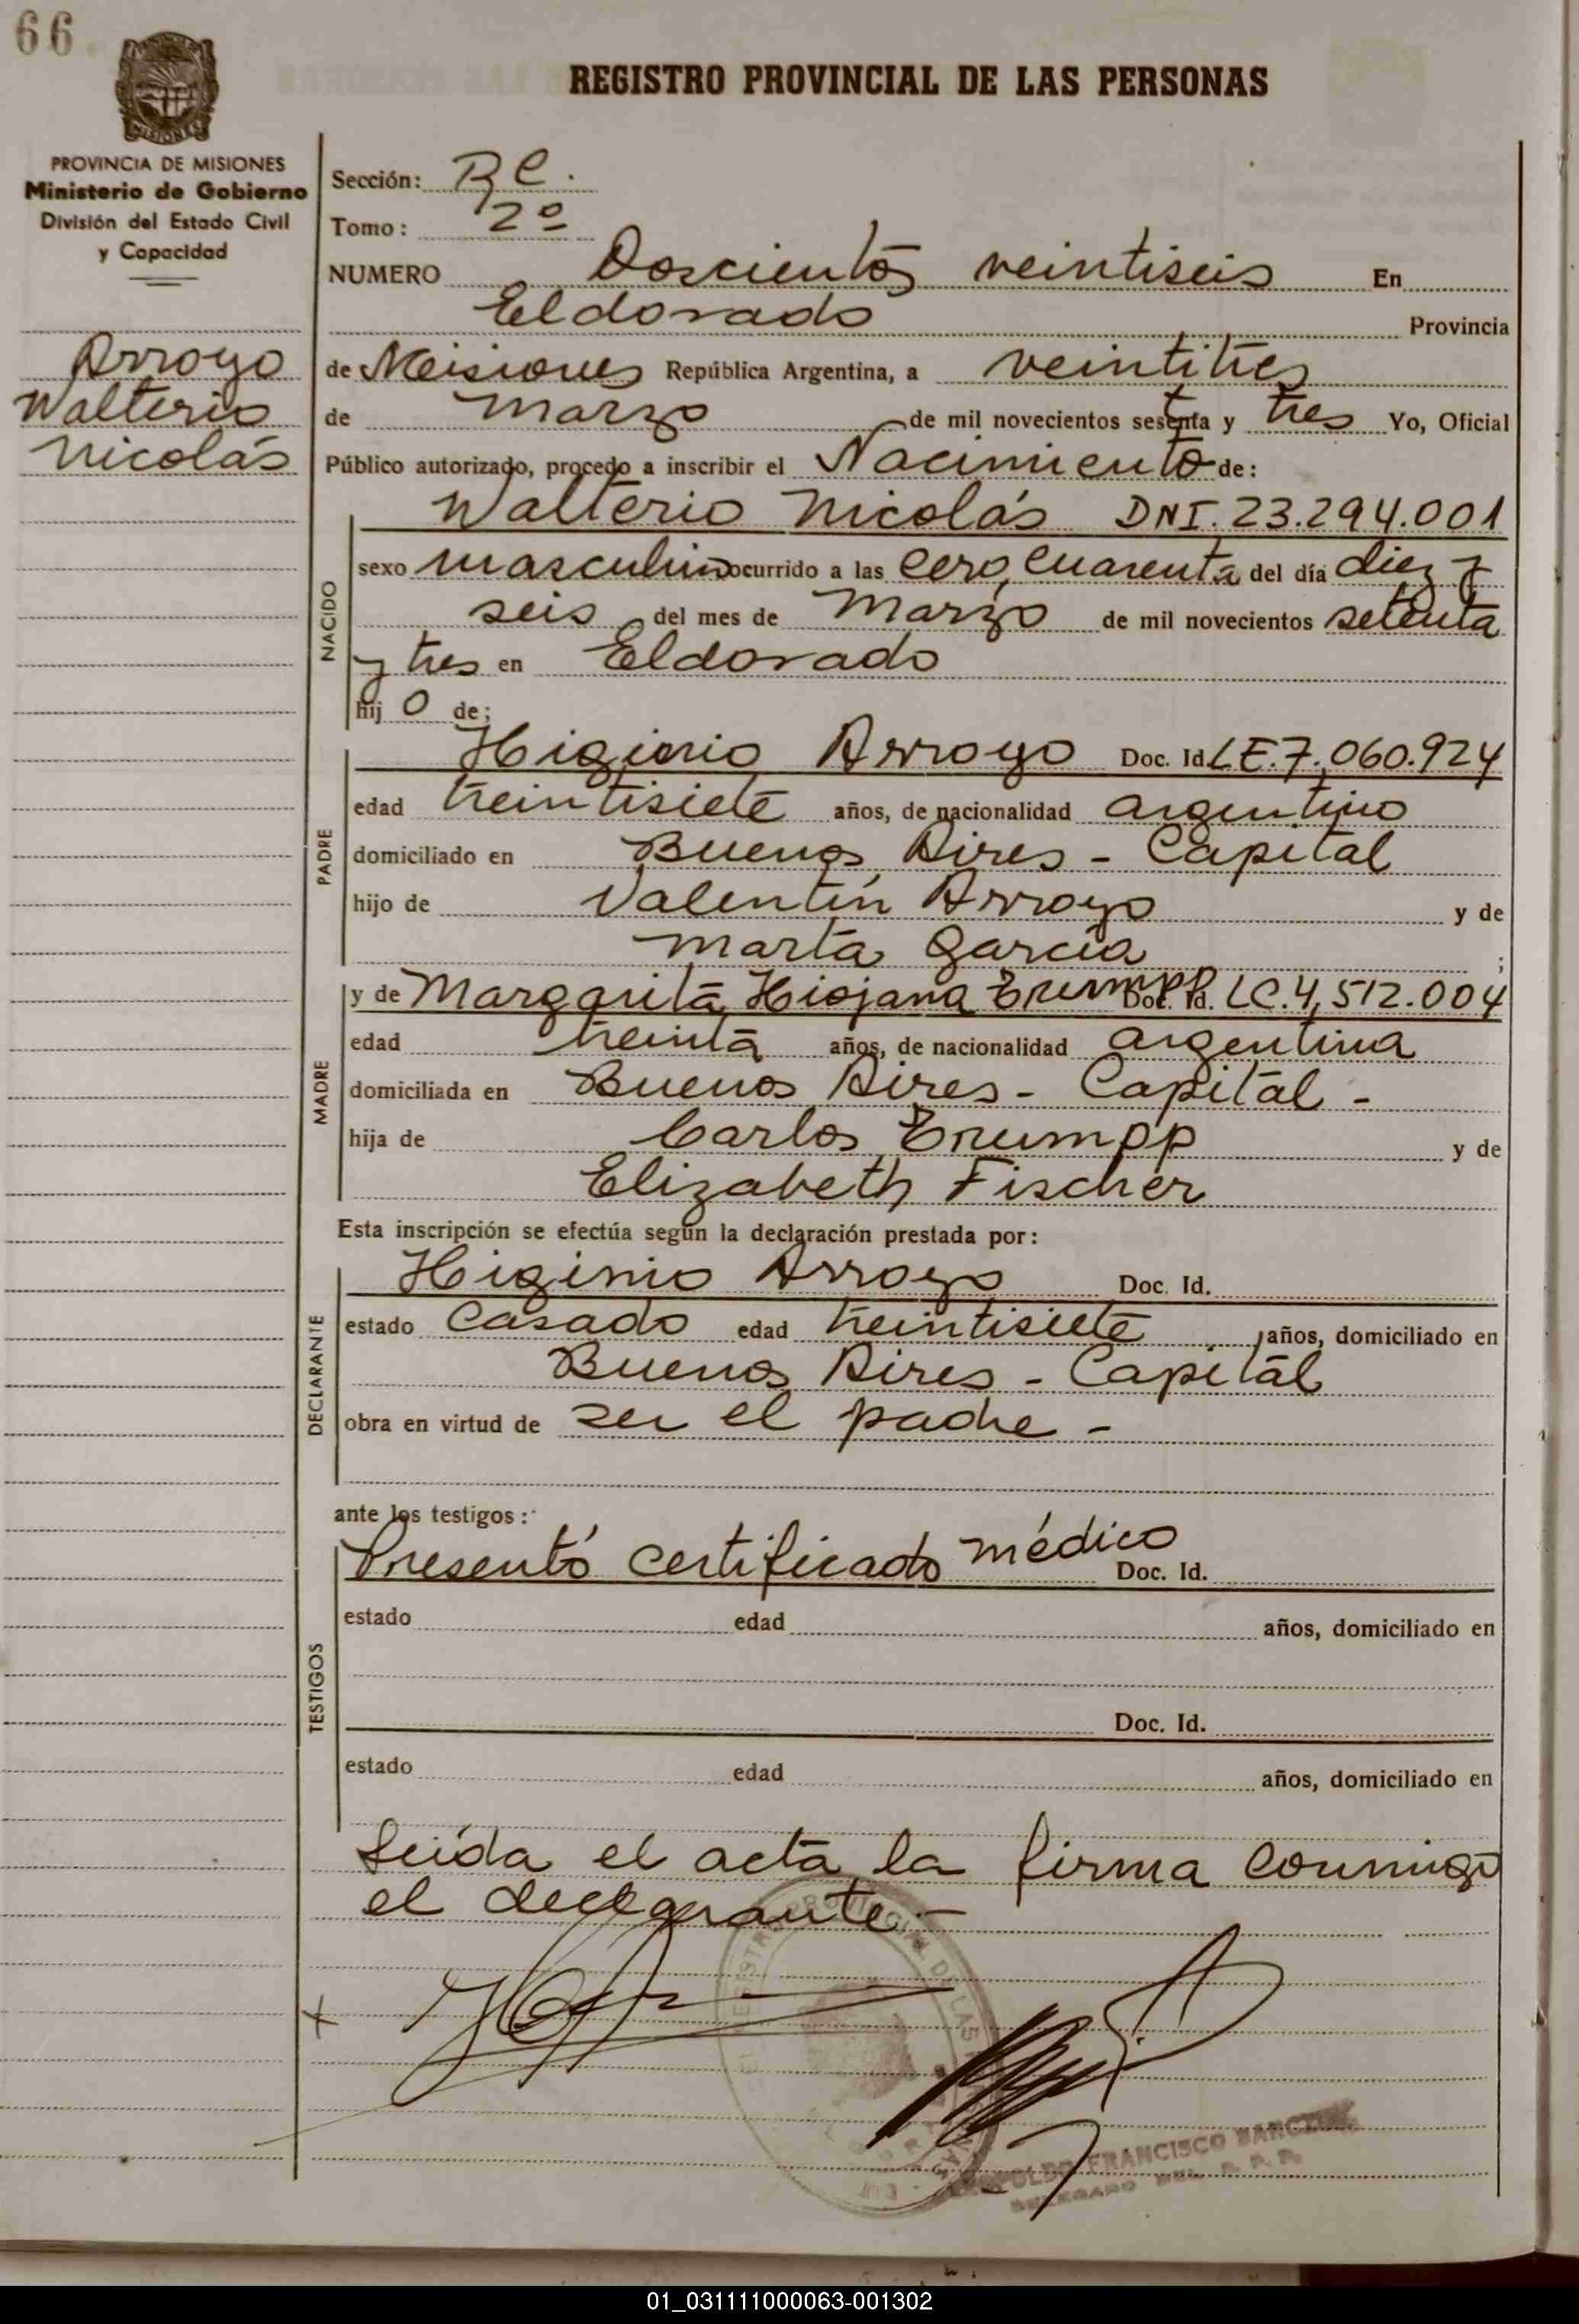 66
REGISTRO PROVINCIAL DE LAS PERSONAS
MISIONES
PROVINCIA DE MISIONES
Ministerio de Gobierno
División del Estado Civil
y Capacidad
Arroyo
Walterio
Nicolás
Sección:
Tomo: 2º
NUMERO Doscientos veintiseis En
Eldorado Provincia
de Misiones República Argentina, a veintitres
de marzo de mil novecientos sesenta y tres Yo, Oficial
Público autorizado, procedo a inscribir el Nacimiento de:
NACIDO
Walterio Nicolás DNI. 23.294.001
sexo masculino ocurrido a las cero, cuarenta del día diez y
seis del mes de marzo de mil novecientos setenta
y tres en Eldorado
hij o de:
PADRE
Higinio Arroyo Doc. Id. LE. 7,060.924
edad treintisiete años, de nacionalidad argentino
domiciliado en Buenos Aires - Capital
hijo de Valentín Arroyo y de
Marta Garcia ;
MADRE
y de Margarita Trumpp Doc. Id. LC. 4,512.004
edad treinta años, de nacionalidad argentina
domiciliada en Buenos Aires - Capital -
hija de Carlos Trumpp y de
Elizabeth Fischer
Esta inscripción se efectúa según la declaración prestada por:
DECLARANTE
Higinio Arroyo Doc. Id.
estado casado edad treintisiete años, domiciliado en
Buenos Aires - Capital
obra en virtud de ser el padre -
ante los testigos:
TESTIGOS
Presentó certificado médico Doc. Id.
estado edad años, domiciliado en
Doc. Id.
estado edad años, domiciliado en
Leída el acta la firma conmigo
el declarante.-
FRANCISCO
DELEGADO DEL R. P. P.
01_031111000063-001302